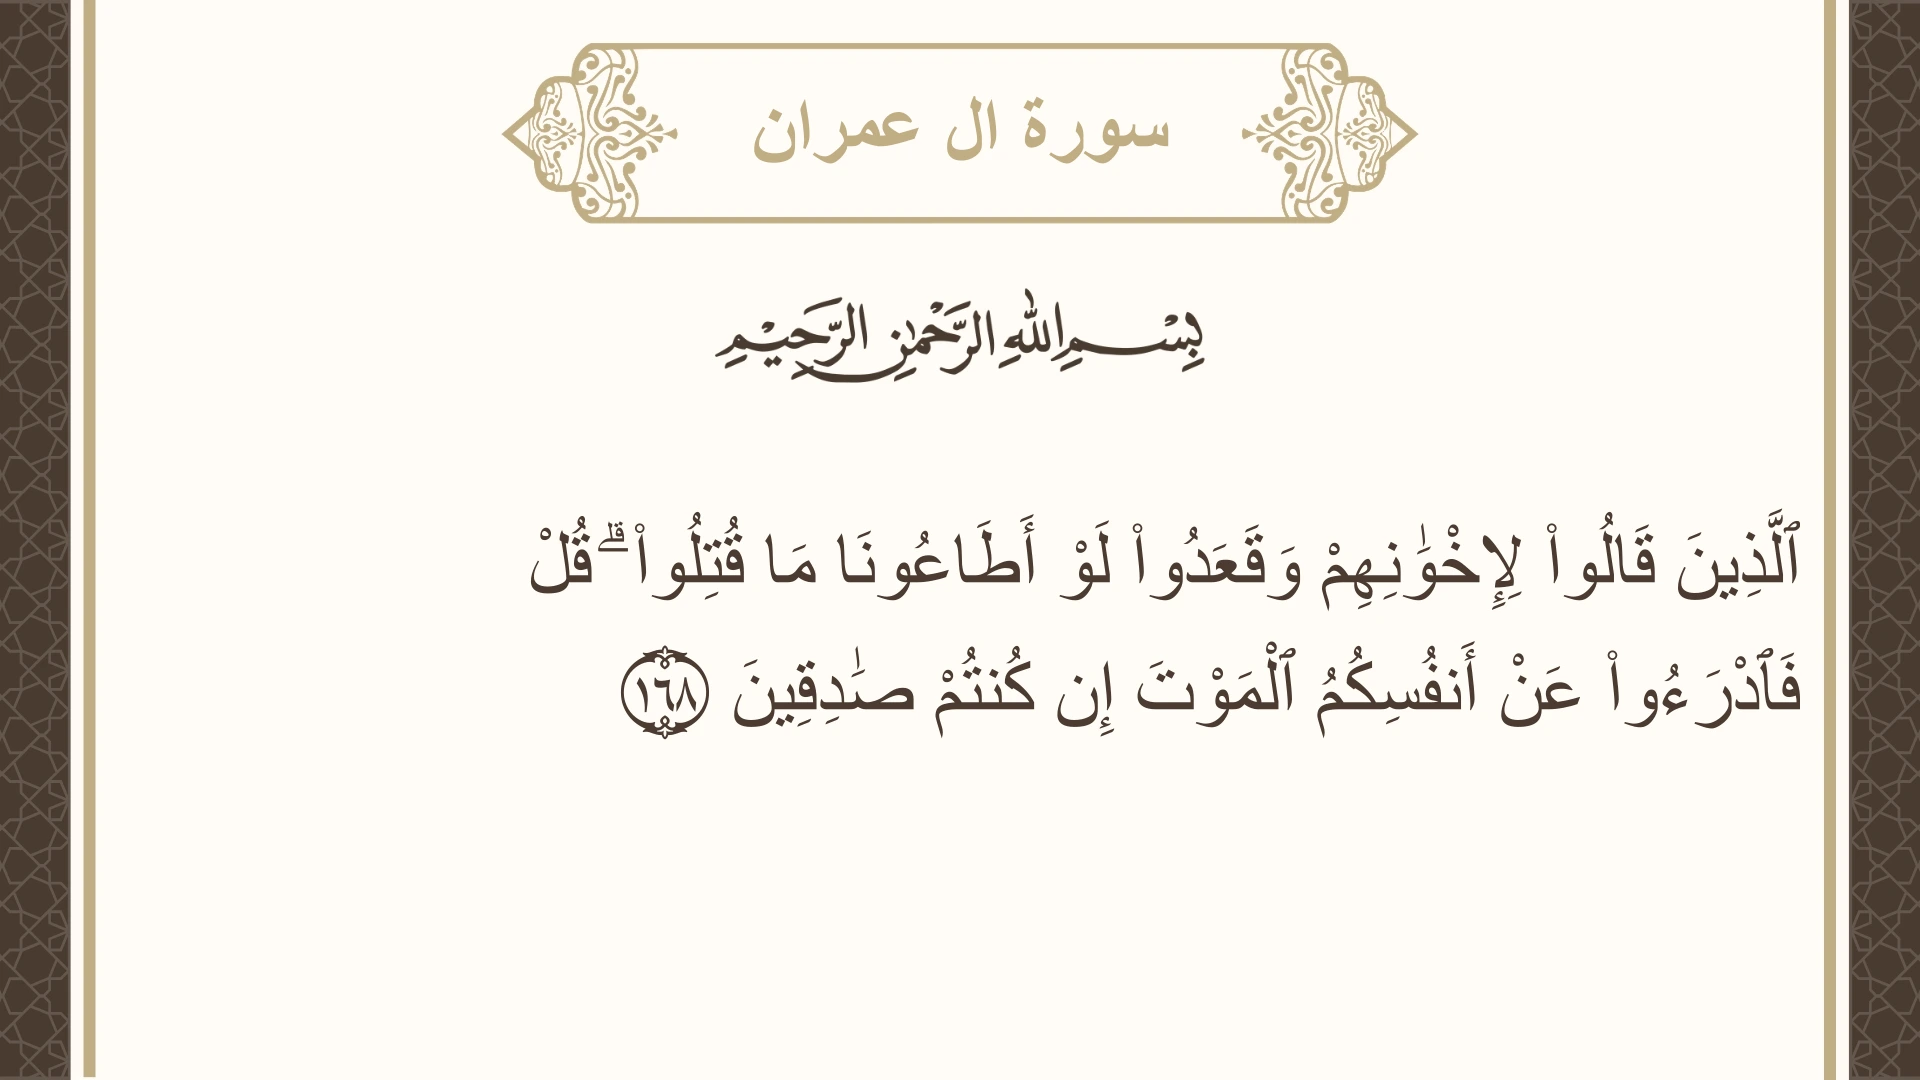 سورة ال عمران
بِسْمِ اللهِ الرَّحْمٰنِ الرَّحِيْمِ
ٱلَّذِينَ قَالُوا۟ لِإِخْوَٰنِهِمْ وَقَعَدُوا۟ لَوْ أَطَاعُونَا مَا قُتِلُوا۟ ۗ قُلْ
فَٱدْرَءُوا۟ عَنْ أَنفُسِكُمُ ٱلْمَوْتَ إِن كُنتُمْ صَٰدِقِينَ ١٦٨